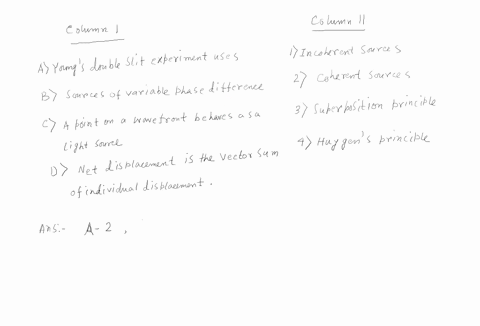 Column I
A) Young's double slit experiment uses
B) Sources of variable phase difference
C) A point on a wavefront behaves as a
light source
D) Net displacement is the vector sum
of individual displacement.
Column II
1) Incoherent Sources
2) Coherent Sources
3) Superposition principle
4) Huygen's principle
Ans:- A-2 ,